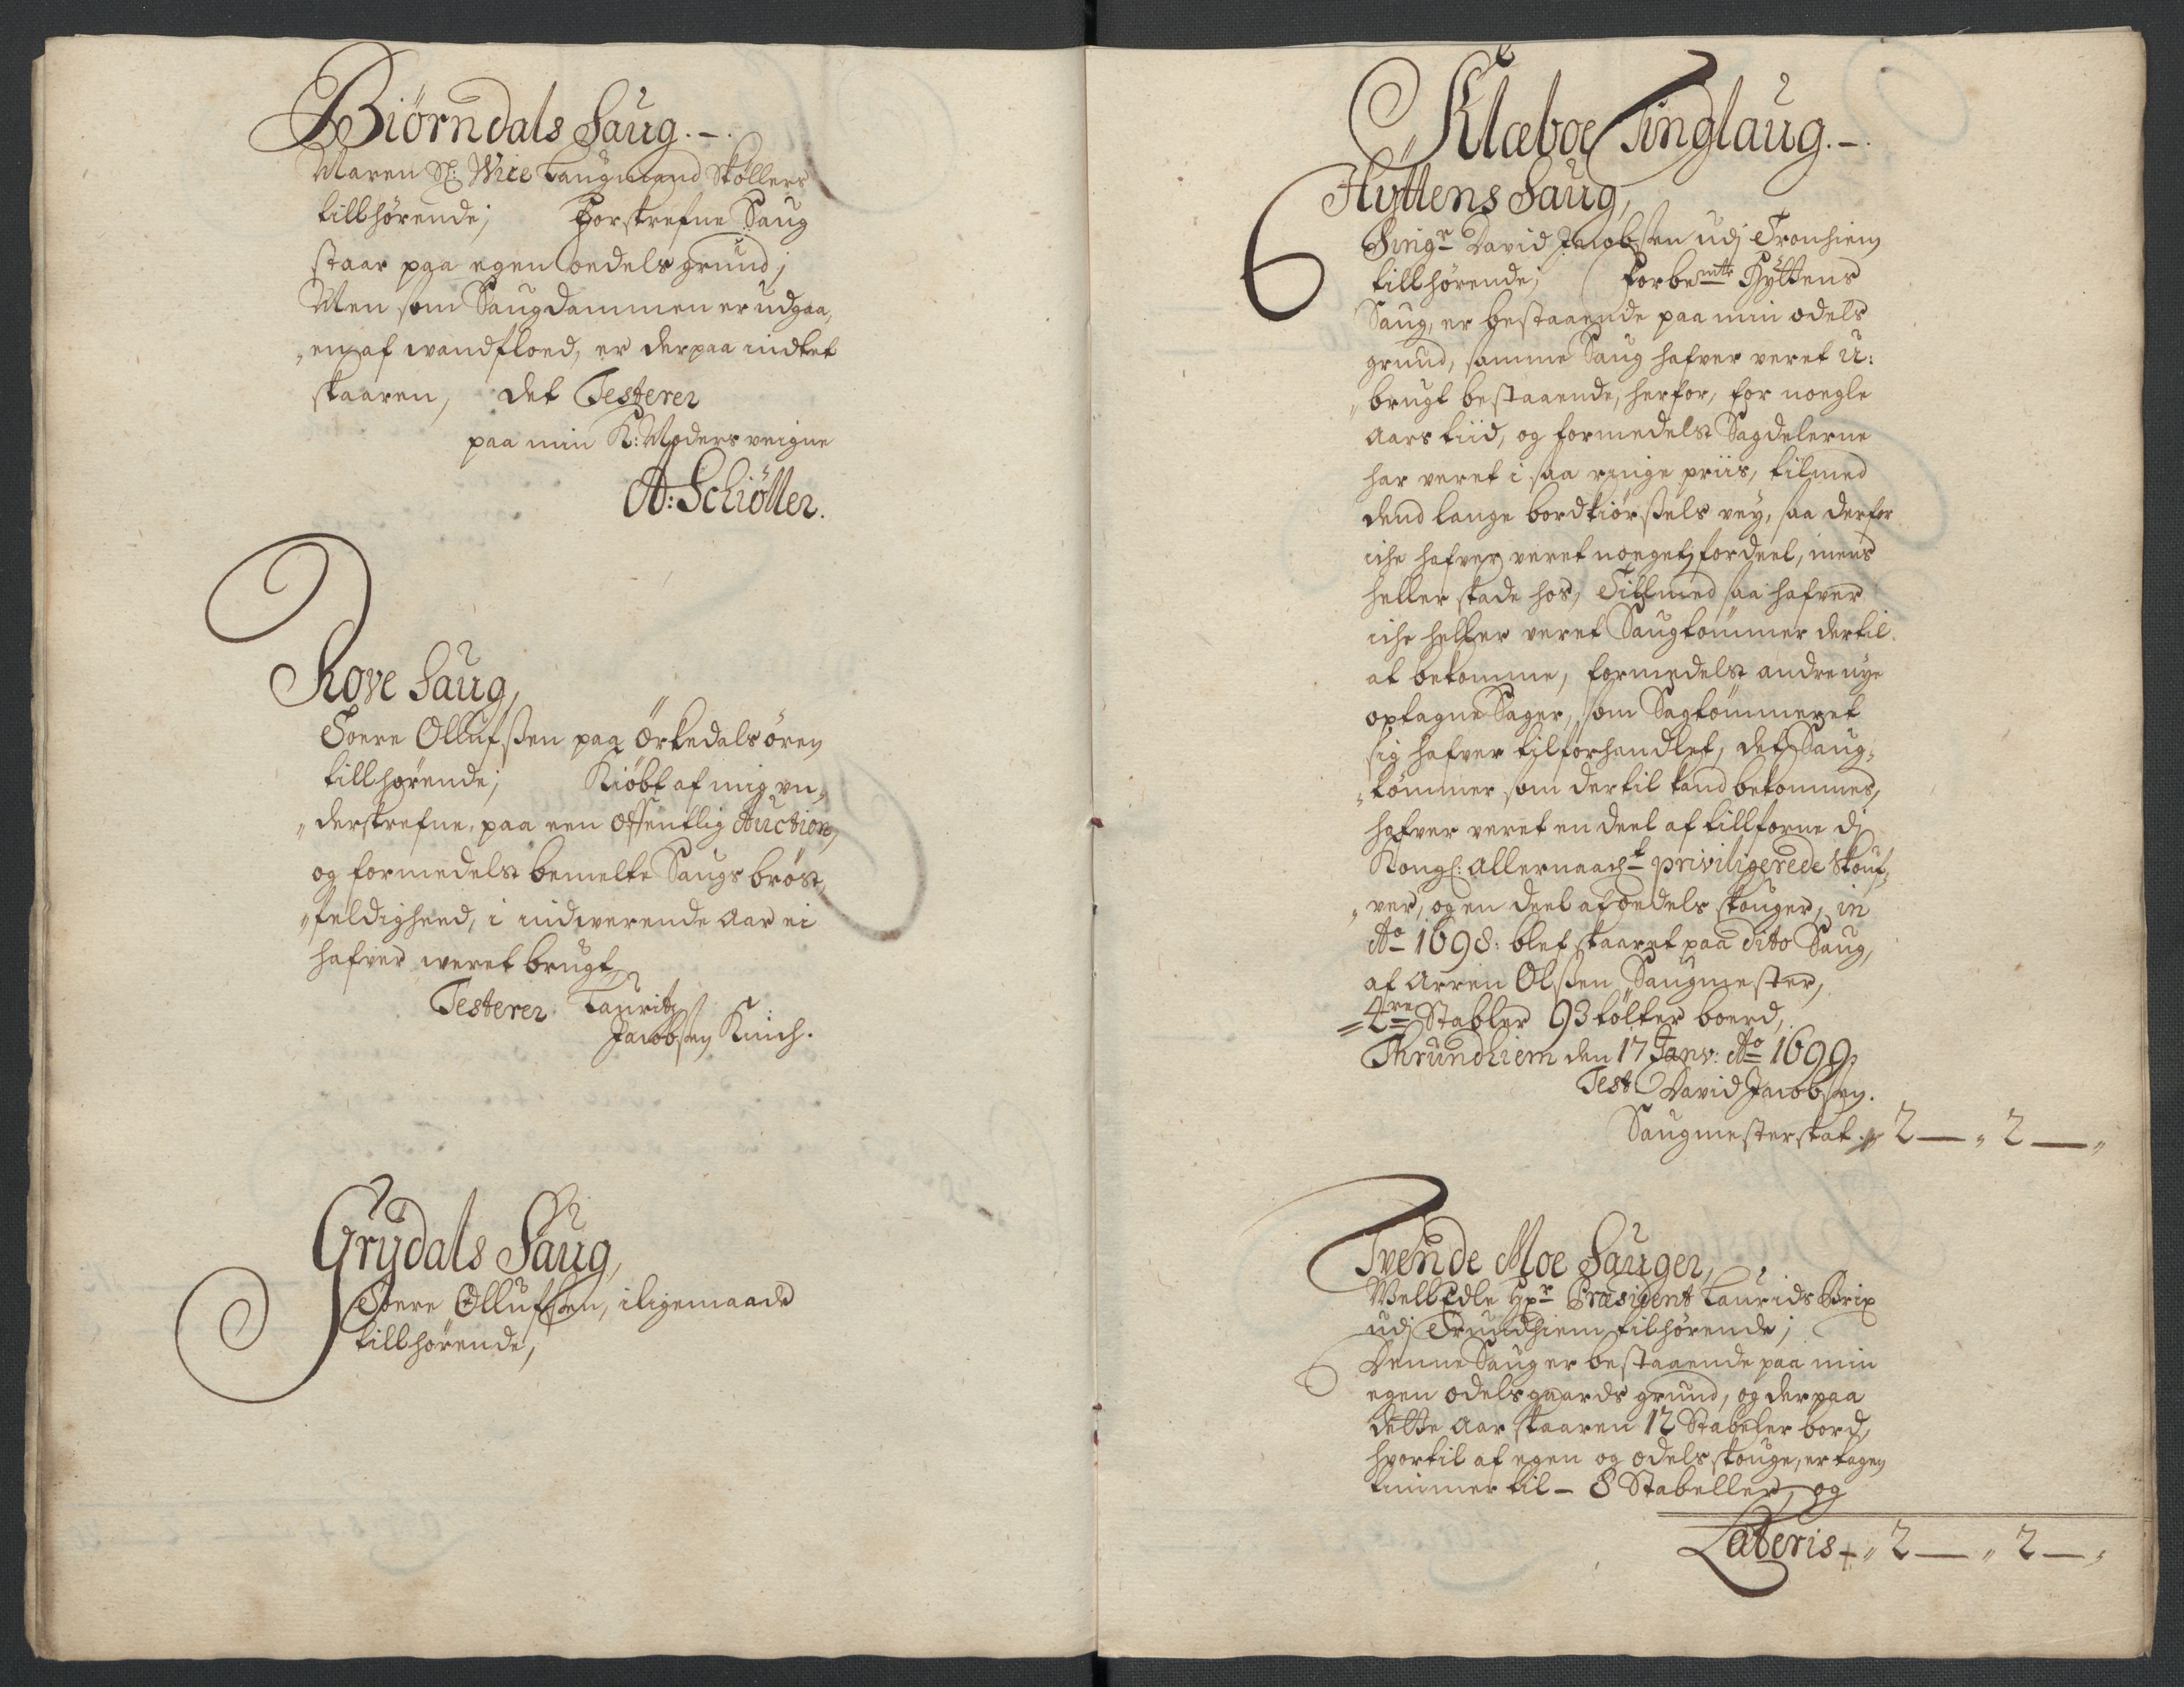 Biörndals Saug.-.
Maren Sl: Wice Laugmand Sköllers
tillhørende; Forskrefne Saug
staar paa egen oedels grund;
Men som Saugdammen er udgaa,
„en af wandfloed, er derpaa indtet
skaaren, det Testerer
paa min K: Moders veigne
A: Schiöller.
Rove Saug,
Soere Ollufssen paa Örkedalsören
tillhørende; Kiöbt af mig vn,
„derskrefne, paa een offentlig Auction,
og formedelst bemelte Saugs bröst,
„feldigheed, i indwerende Aar ei
hafver weret brugt,
Testerer Lauritz
Jacobsen Kinch.
Grydals Saug,
Soere Ollufssen, iligemaade
tillhørende,
Klæboe Tinglaug.-.
Hyttens Saug,
Sing.r David Jacobssen udj Tronhiem
tillhørende; forbemte Hyttens
Saug, er bestaaende paa min odels
grund, samme Saug hafver veret u:
„brugt bestaaende, herfor, for noegle
Aars tiid, og formedelst Sagdelerne
har veret i saa ringe priis, tilmed
dend lange bordkiörssels vey, saa derfor
iche hafver veret noeget fordeel, mens
heller skade hos, Tillmed saa hafver
iche heller veret Saugtömmer dertil
at bekomme, formedelst andre nye
optagne Sager, som Sagtömmeret
sig hafver tilforhandlet, det Saug,
„tömmer som dertil kand bekommes,
hafver veret en deel af tillforne dj
Kongl: allernaad.t priviligerede Skouf,
„ver, og en deel af oedels skouger, in
Ao 1698: blef skaaret paa dito Saug,
af Arren Olssen Saugmester,
4re Stabler 93 tölter boerd,
Thrundhiem den 17 Janv: Ao 1699,
Test David Jacobsen.
Saugmesterskat „ 2 — „ 2 — „
Tvende Moe Sauger,
WellEdle Hr Præsident Laurids Brix
udj Trundhiem tilhørende;
Denne Saug er bestaaende paa min
egen odels gaards grund, og derpaa
dette Aar skaaren 12 Stabeler bord,
hvortil af egen og odels skouge, er tagen
timmer til – 8 Stabeller, og
Lateris „ 2 — „ 2 — „